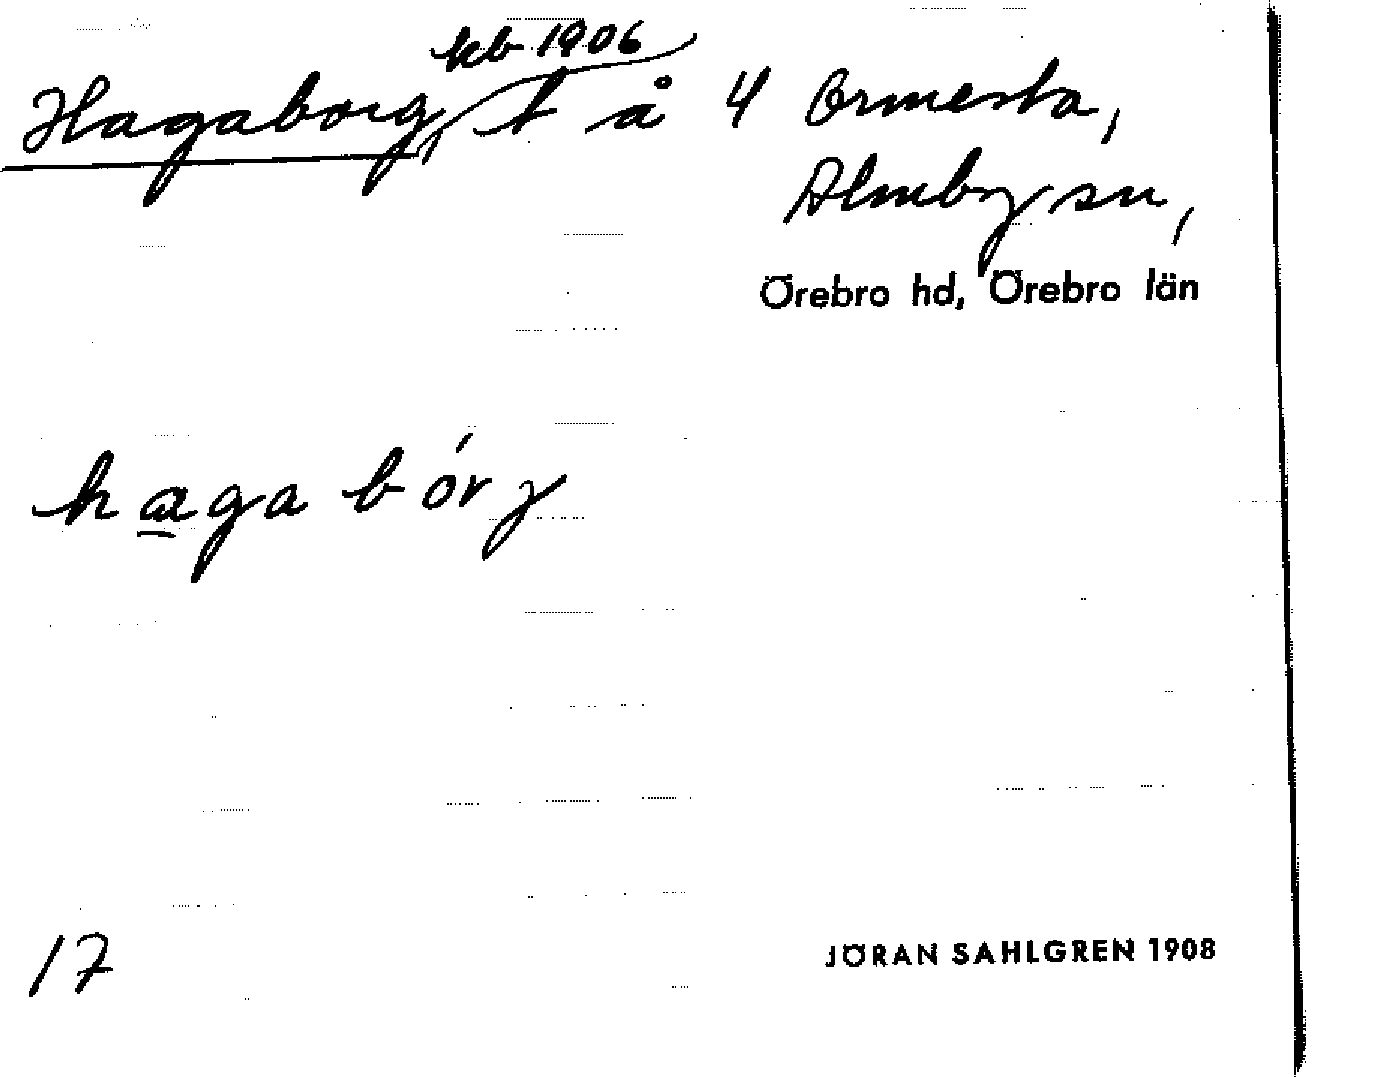 kb 1906
Hagaborg, t å 4 Ormesta,
Almby sn,
Örebro hd, Örebro län
hagabórj
17
JÖRAN SAHLGREN 1908